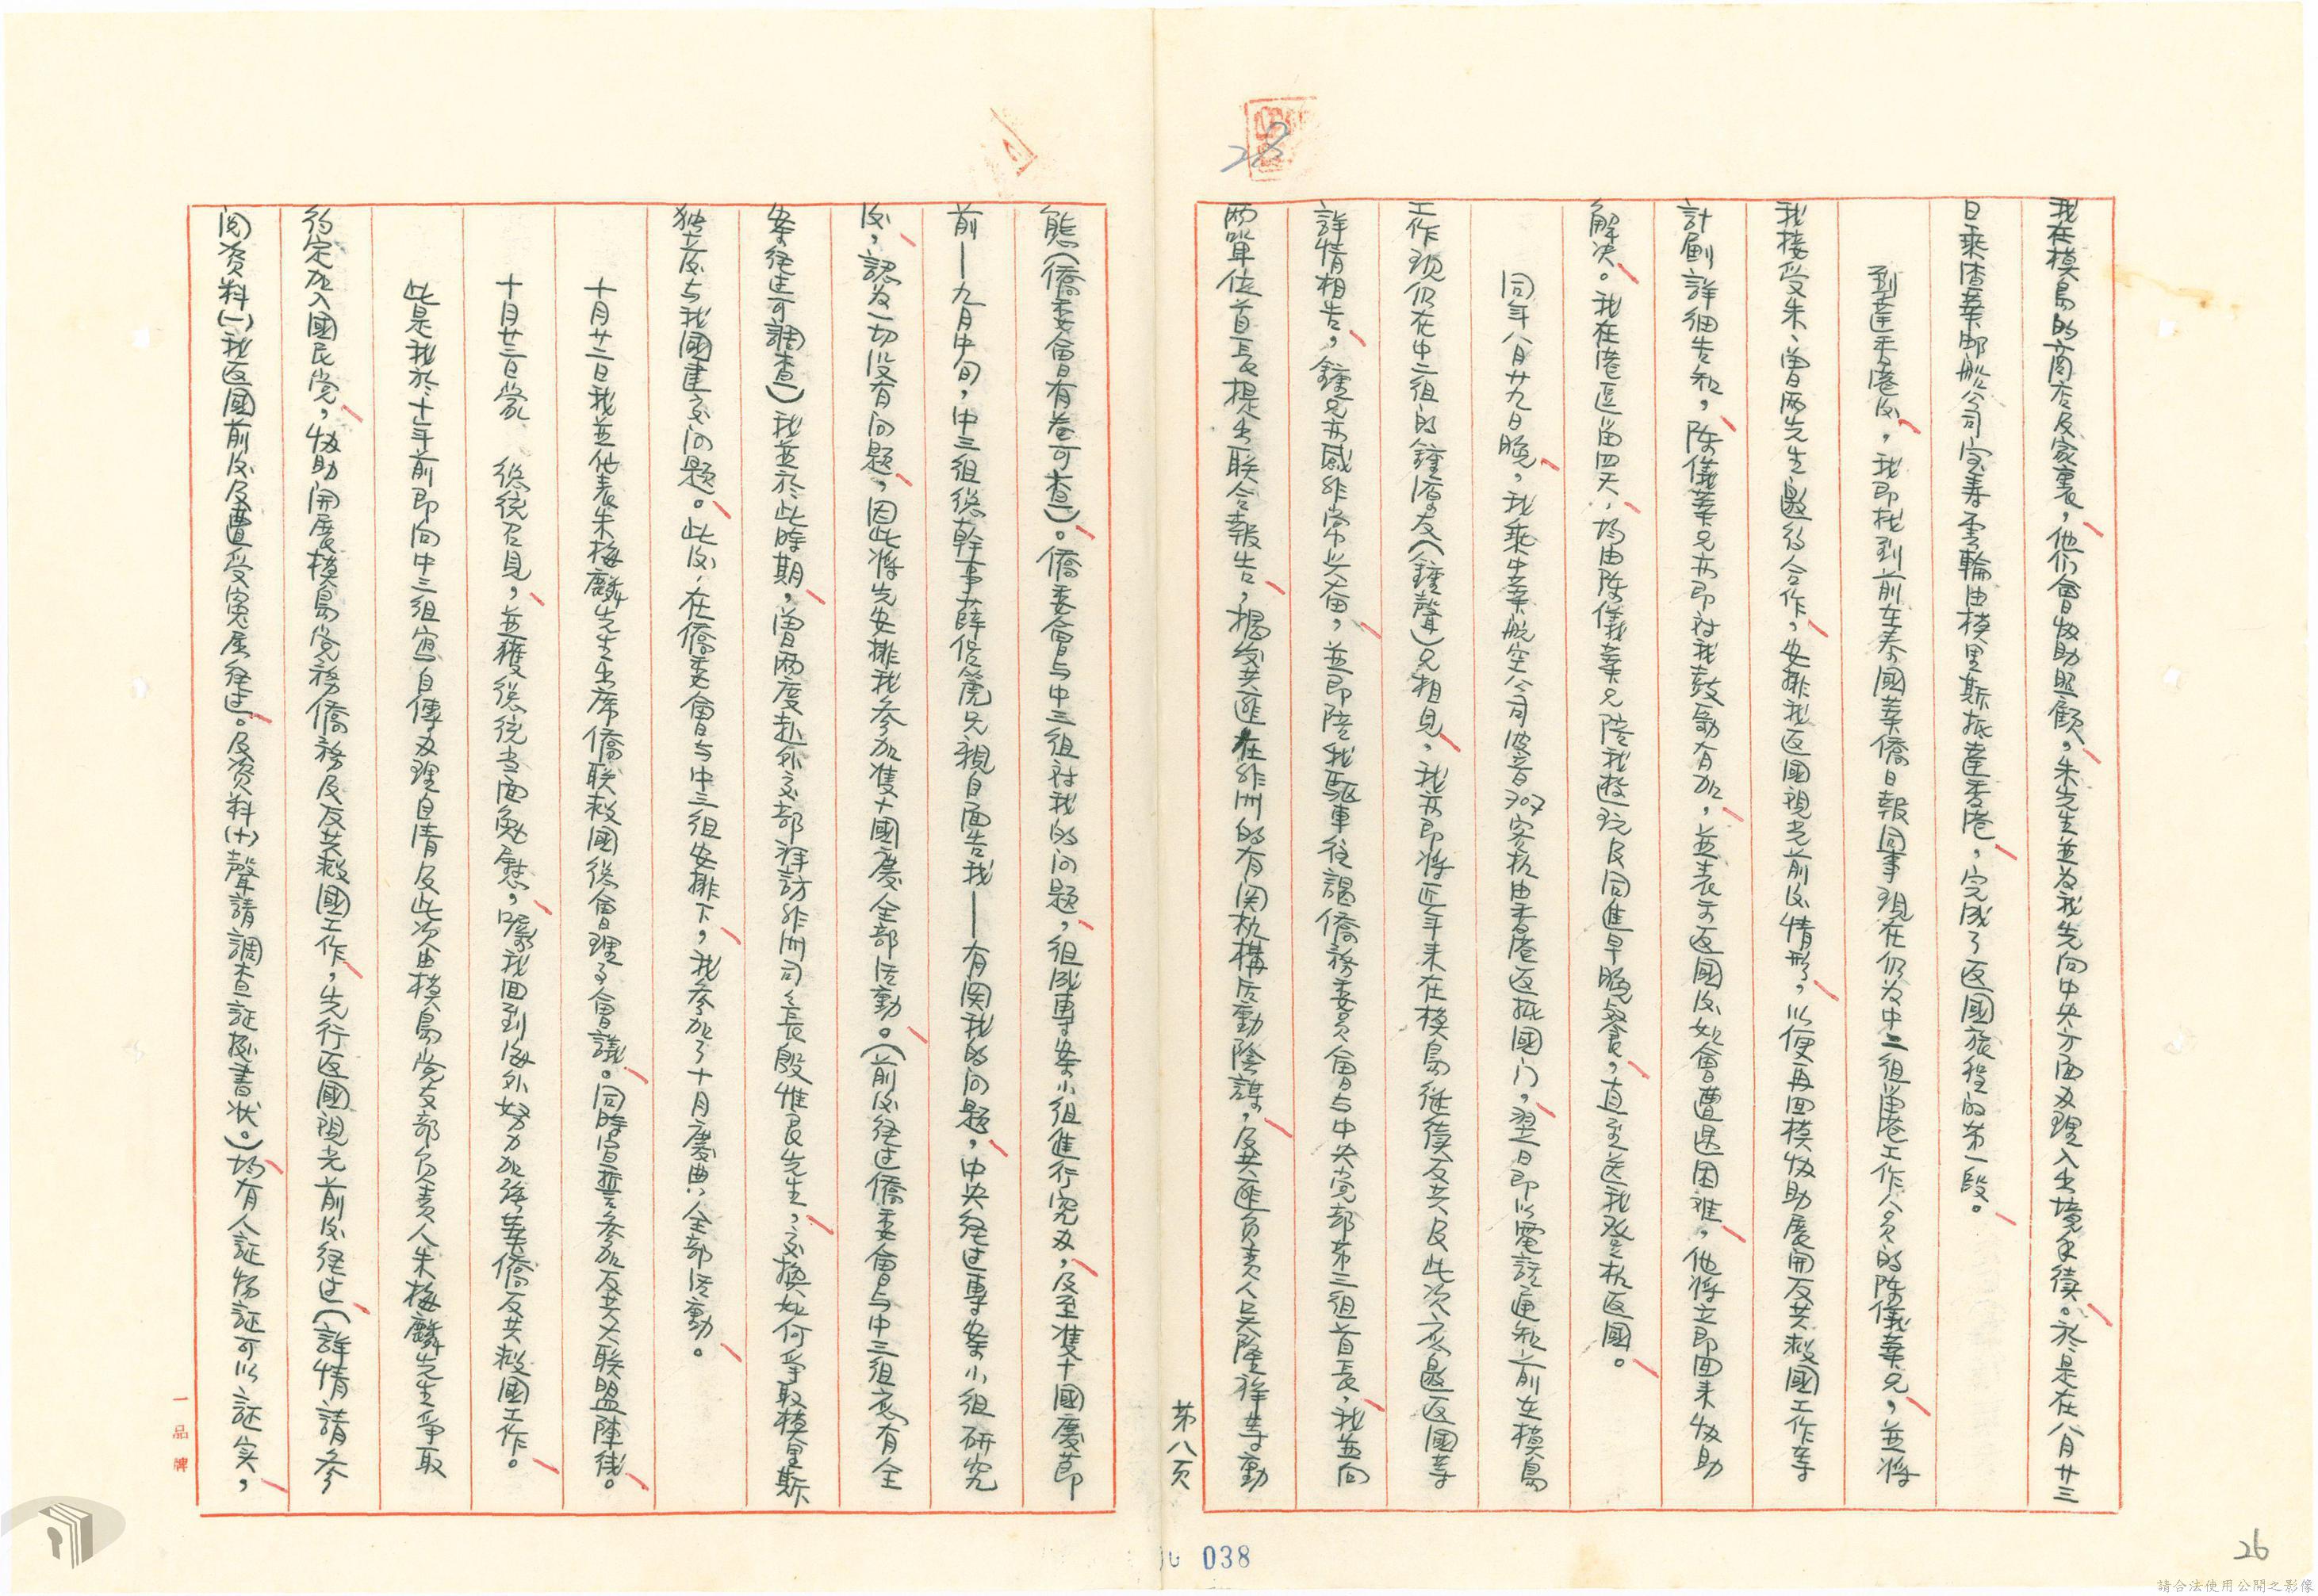 我在模島的商店及家裏，他們會協助照顧，朱先生並為我先向中央方面办理入出境手續。於是在八月廿三
日乘渣華郵船公司宝壽雲輪由模里斯抵達香港，完成了返國旅程的第一段。
到達香港後，我即找到前在泰國華僑日報同事現在仍為中二組留港工作人员的陈儀華兄，並将
我接受朱、曾两先生邀约合作，安排我返國視光前後情形，以便再回模協助展開反共救國工作等
計劃詳細告和，陈儀華兄亦即对我鼓勵有加，並表示返國後如會遭遇困难，他将立即回来協助
解决。我在港逗留四天，均由陈儀華兄陪我遊玩及同進早晚餐，直至送我登机返國。
同年八月廿九日晚，我乘中華航空公司波音707客机由香港返抵國门，翌日即以電話通知前在模島
工作現仍在中二组的鐘湄友（鐘聲）兄相見，我亦即将近年来在模島继續反共及此次应邀返國等
詳情相告，鐘兄亦感非常兴奋，並即陪我驱車往謁僑務委员會与中央党部第三组首長，我並向
两單位首長提出联合報告，揭发共匪在非洲的有関机構活動陰謀，及共匪负责人吴隆祥等動
第八页
態（僑委會有卷可查）。僑委會与中三组对我的问题，组成專案小组進行究办，及至雙十國慶節
前——九月中旬，中三组總幹事薛侶篪兄親自面告我——有関我的问题，中央经过專案小组研究
後，認为一切没有问题，因此将先安排我参加雙十國慶全部活動。（前後经过僑委會与中三组应有全
案经过可調查）我並於此時期，曾两度赴外交部拜訪非洲司司長殷惟良先生，交換如何爭取模里斯
独立後与我國建交问题。此後，在僑委會与中三组安排下，我参加了十月慶典，全部活動。
十月廿二日我並代表朱梅麟先生出席僑联救國總會理事會議。同時宣誓参加反共大联盟陣线。
十月廿三日蒙　總統召見，並獲總統当面勉慰，囑我回到海外努力加強華僑反共救國工作。
此是我於十年前即向中三组寫自傳办理自清及此次由模島党支部负责人朱梅麟先生爭取
约定加入國民党，協助開展模島党務僑務及反共救國工作，先行返國視光前後经过（詳情請参
阅资料㈠我返國前後及遭受寃屈经过。及资料㈩聲請調查証据書状。）均有人証物証可以証实，
一品牌
038
28
26
請合法使用公開之影像